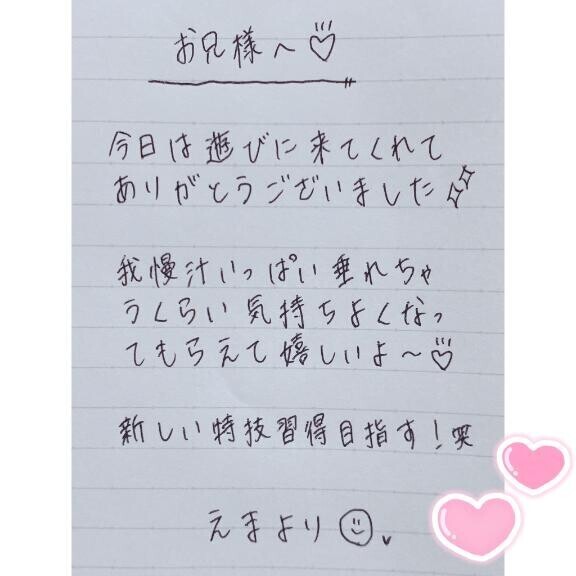 お兄様へ♡
今日は遊びに来てくれて
ありがとうございました✨
我慢汁いっぱい垂れちゃ
うくらい気持ちよくなっ
てもらえて嬉しいよ〜♡
新しい特技習得目指す!笑
えまより☺